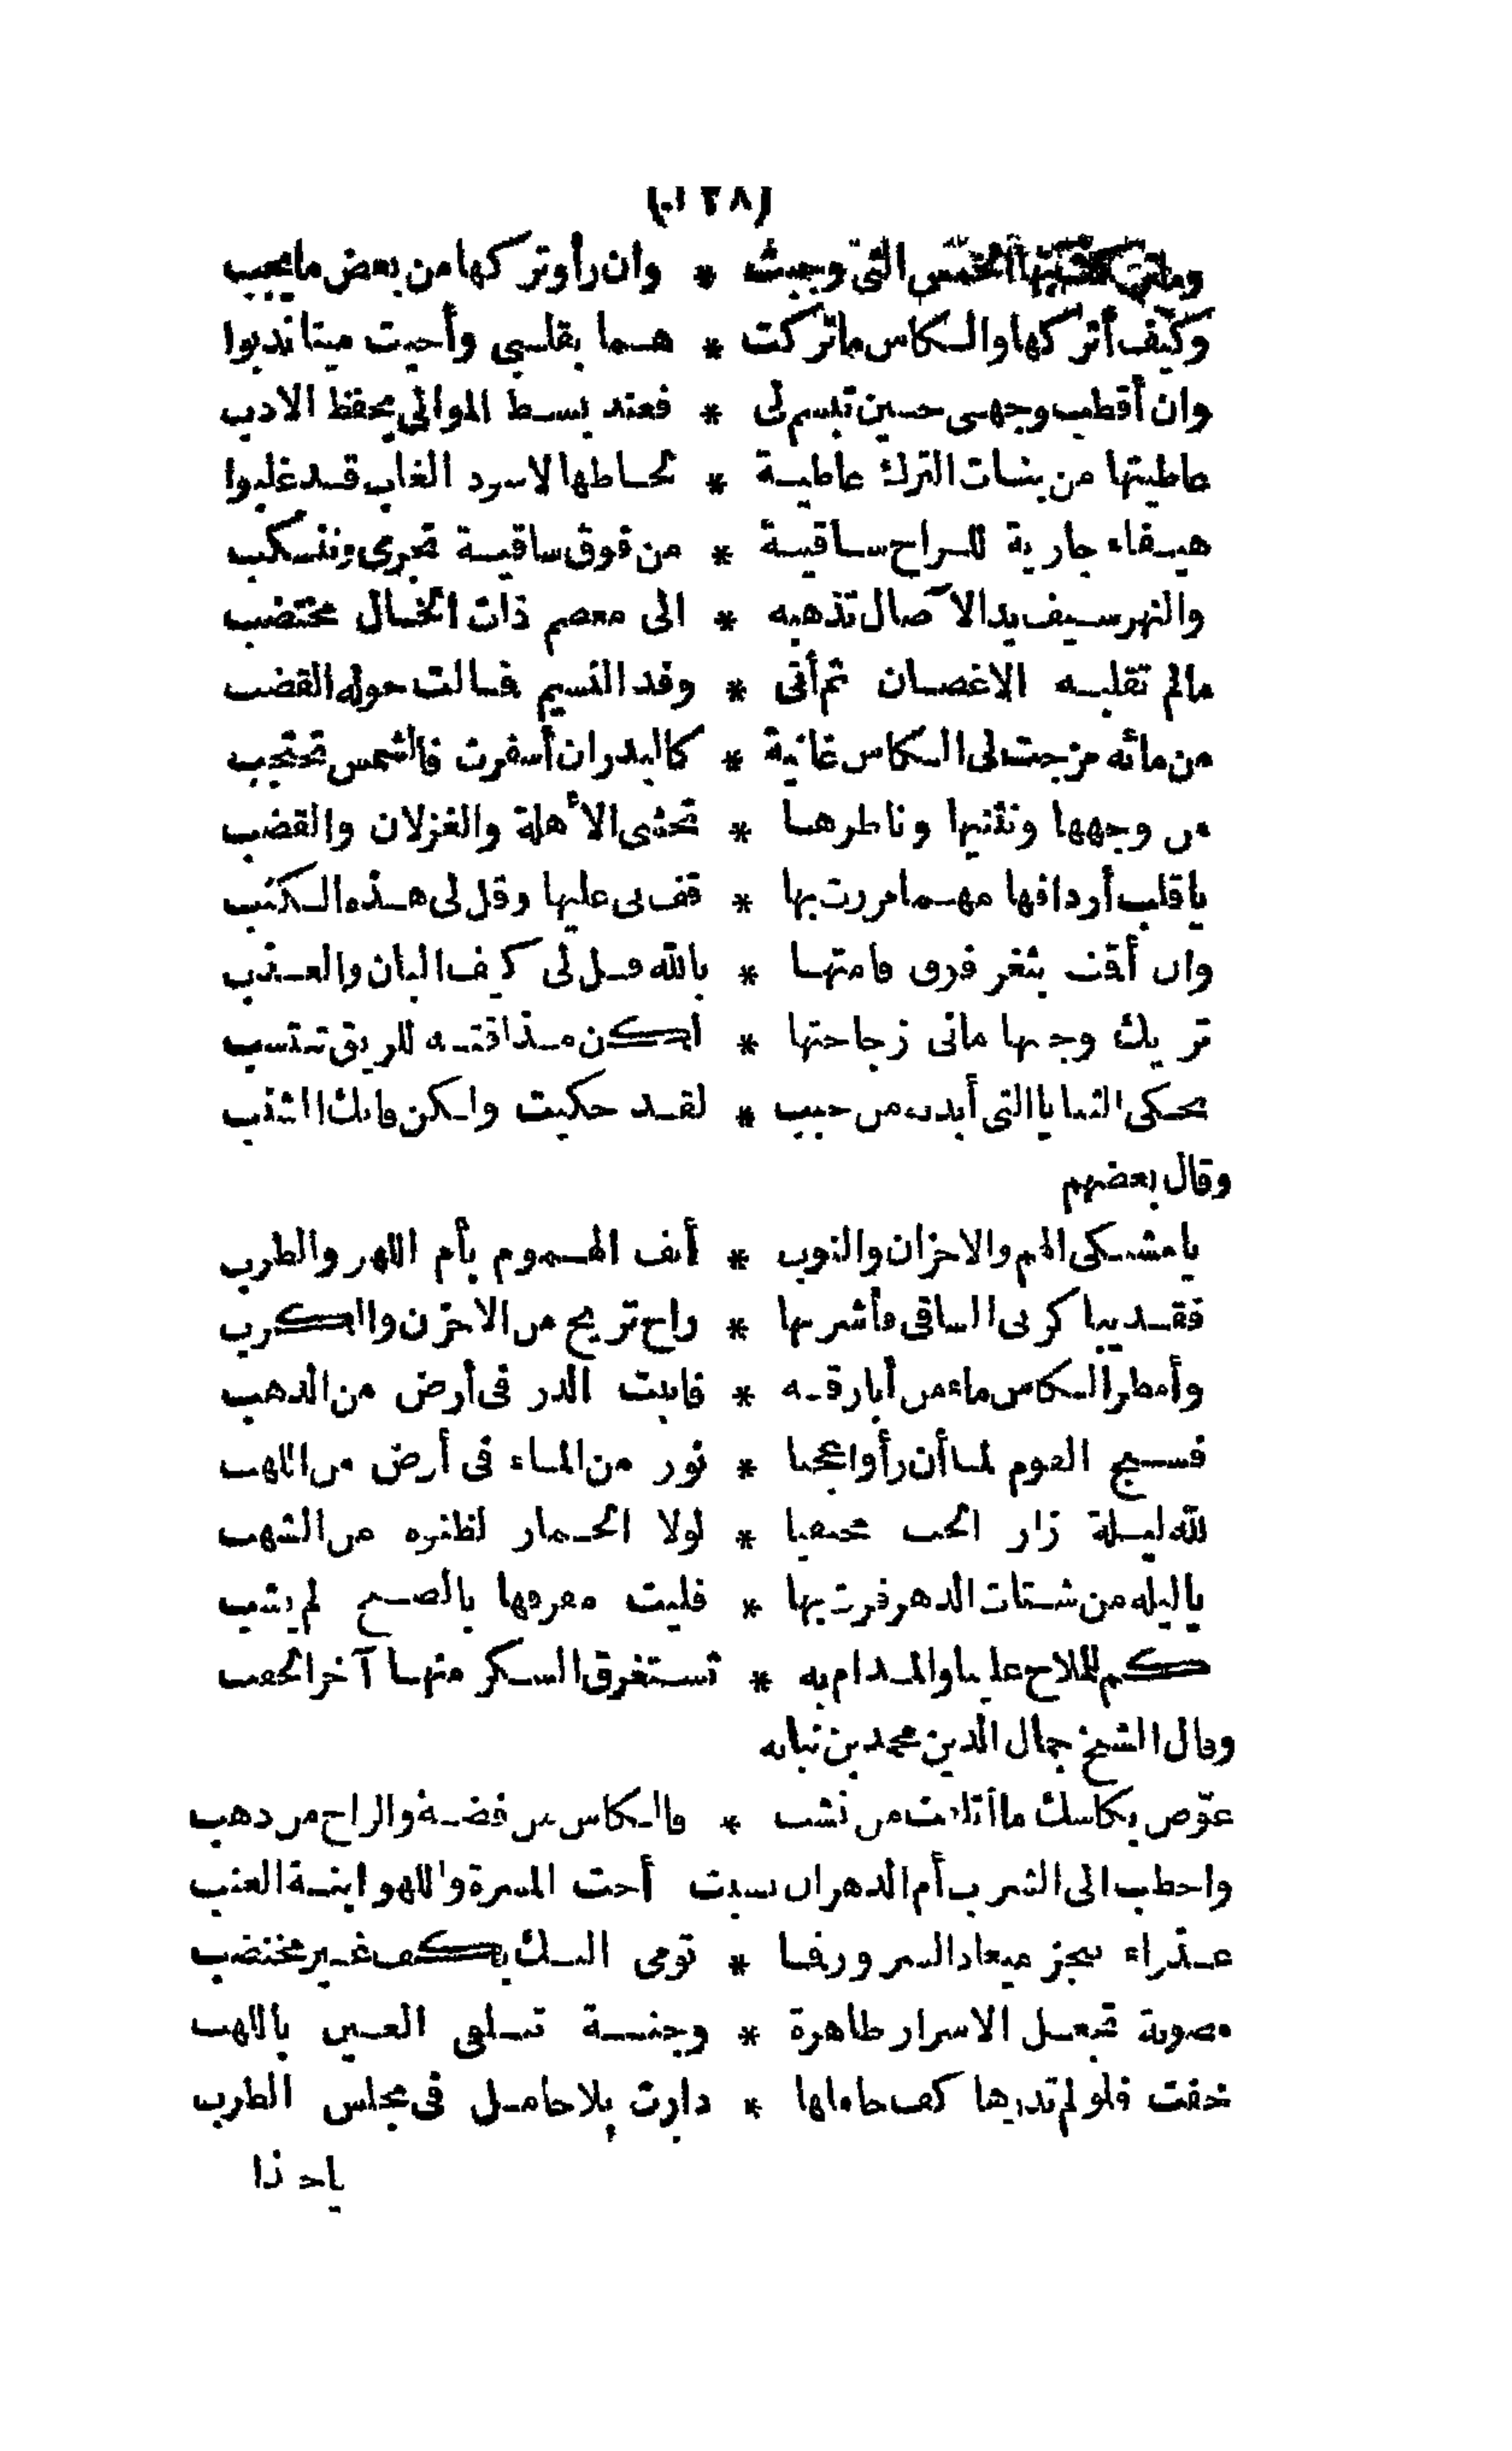 (١٢٨)
وما تركت بها الخمس التى وجبت * وان رأوتركها من بعض مايجب
وكيف أتركها والكاس ماتركت * هما بقلبى وأحيت ميتا ندبوا
وان أقطب وجهى حين تبسم لى * فعند بسط الموالى يحفظ الادب
عاطيتها من بنات الترك عاطية * لحاظها لاسود الغاب قد غلبوا
هيفاء جارية للراح ساقية * من فوق ساقية تجرى وتنسكب
والنهر سيف يد الآصال تذهبه * الى معصم ذات الخال مختضب
مالم تقلبه الاغصان ثم أتى * وفد النسيم فمالت حوله القضب
من مائه مزجت لى الكاس غانية * كالبدران أسفرت فالشمس تحتجب
من وجهها وتثنيها وناظرها * تخشى الأهلة والغزلان والقضب
ياقلب أردافها مهما مررت بها * قف بى عليها وقل لى هذه الكثب
وان أقت بثغر فوق قامتها * بالله قل لى كيف البان والعذب
تريك وجنتها مافى زجاجتها * لكن مذاقته للريق تنتسب
تحكى الثنايا التى أبدته من حبب * لقد حكيت ولكن فاتك الشنب
وقال بعضهم
يا مشتكى الهم والاحزان والنوب * أنف الهموم بأم اللهو والطرب
فقد يباكر بى الساقى فأشربها * راح تريح من الاحزن والكرب
وأمطر الكاس ماء من أبارقه * فانبت الدر فى أرض من الذهب
فسبح القوم لما أن رأوا عجبا * نور من الماء فى أرض من اللهب
لله ليلة زار الحب مختفيا * لولا الخمار لظنوه من الشهب
ياليله من شتات الدهر فزت بها * فليت مفرقها بالصبح لم يشب
حكم للملاح علينا والمدام به * تستغرق السكر منها آخر الحقب
وقال الشيخ جمال الدين محمد بن نباته
عوّض بكاسك ما أتلفت من نشب * فالكاس من فضة والراح من ذهب
واخطب الى الشرب أم الدهر ان نسبت أخت المسرة واللهو ابنة العنب
عذراء تنجز ميعاد السرور فما * تومى اليك بكف غير مختضب
مصونة تجعل الاسرار ظاهرة * وجنة تتلقى العين باللهب
خفت فلو لم تدرها كف حاملها * دارت بلا حامل فى مجلس الطرب
ياحبذا